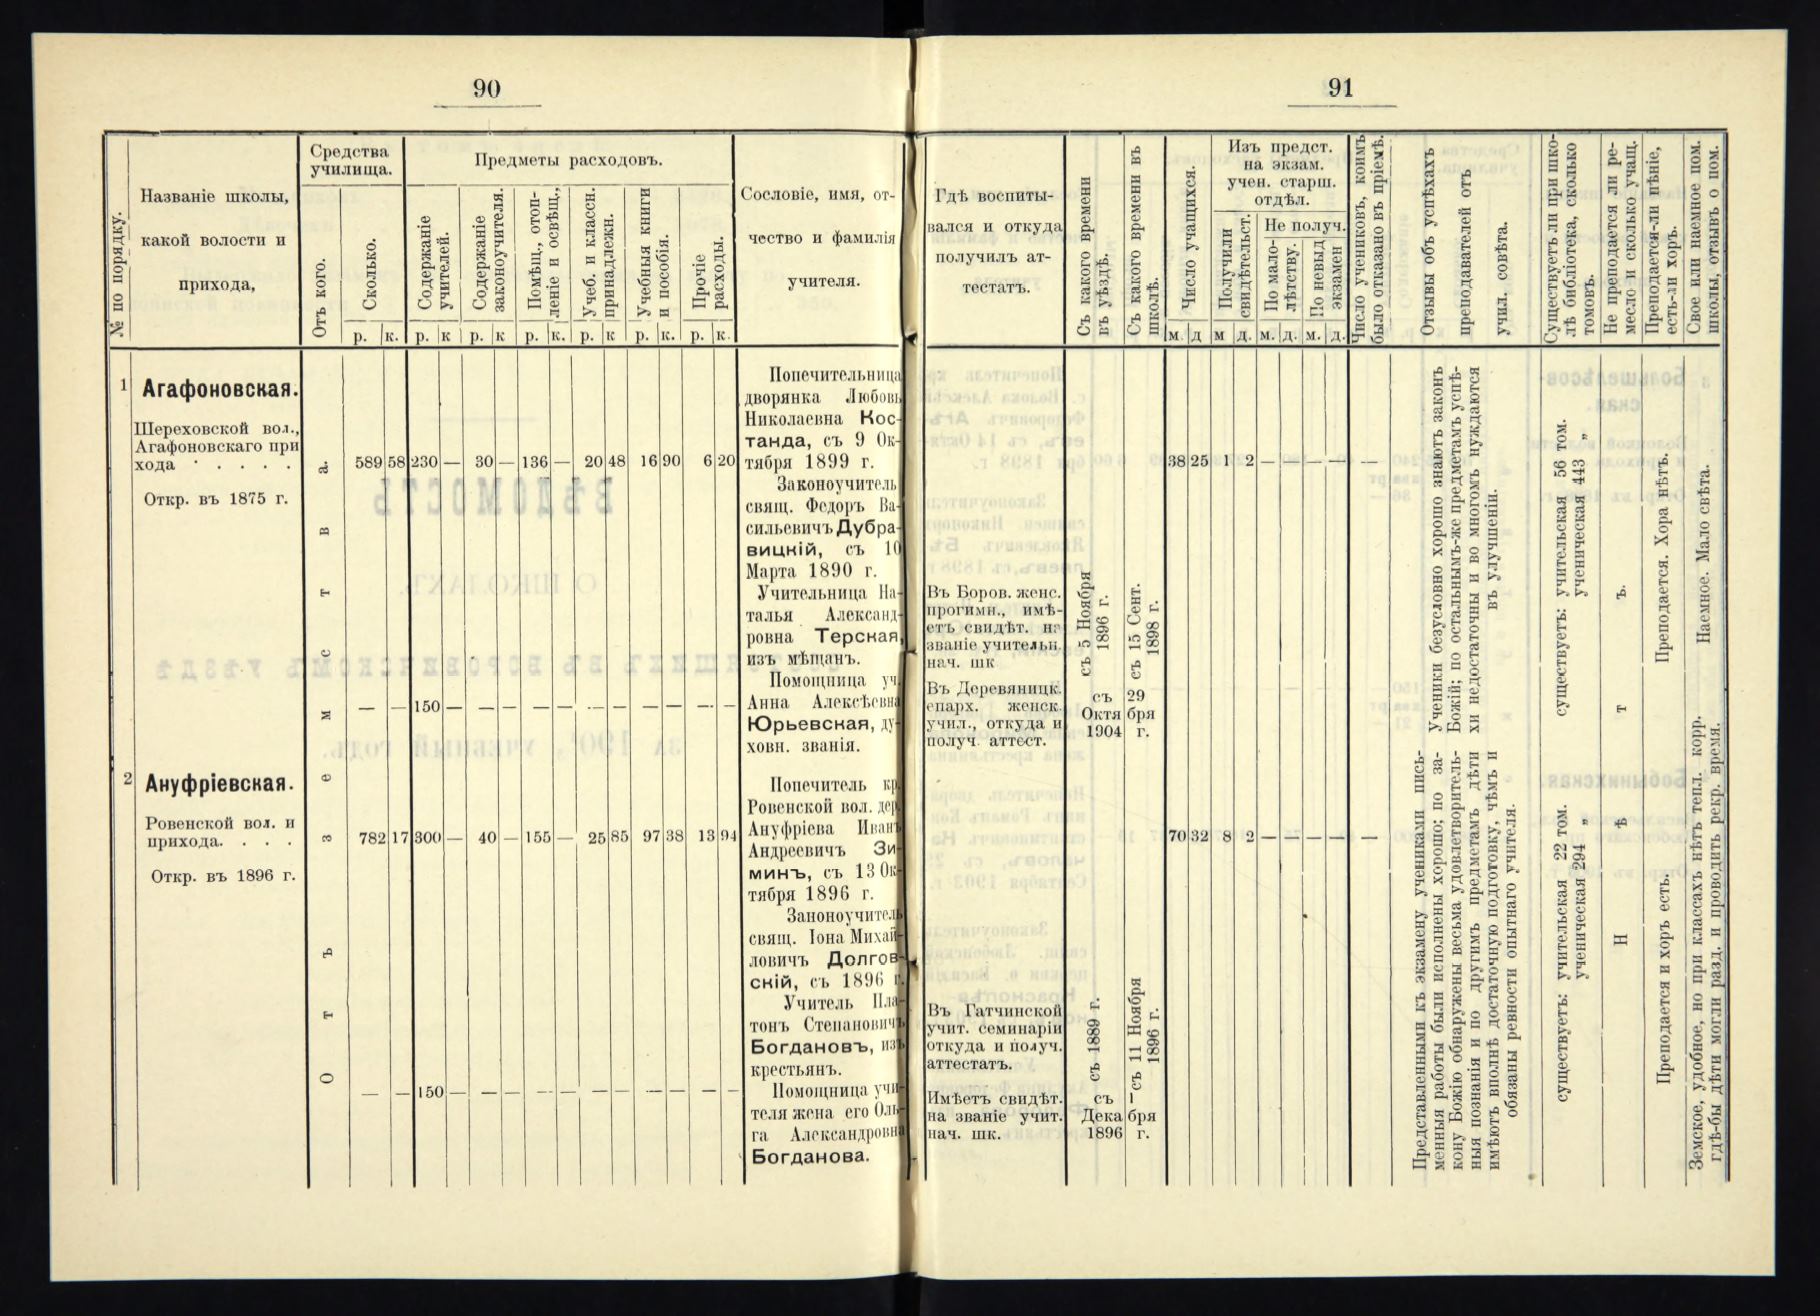 90
№ по порядку.
Названіе школы,
какой волости и
прихода,
Средства
училища.
Отъ кого.
Сколько.
р. к.
Предметы расходовъ.
Содержаніе
учителей.
р. к
Содержаніе
законоучителя.
р. к
Помѣщ., отоп-
леніе и освѣщ.,
р. к.
Учеб. и классн.
принадлежн.
р. к
Учебныя книги
и пособія.
р. к.
Прочіе
расходы.
р. к.
Сословіе, имя, от-
чество и фамилія
учителя.
1
Агафоновская.
Шереховской вол.,
Агафоновскаго при
хода . . . . .
Откр. въ 1875 г.
589 58 230 — 30 — 136 — 20 48 16 90 6 20
— — 150 — — — — — — — — — — —
Попечительница
дворянка Любовь
Николаевна Кос-
танда, съ 9 Ок-
тября 1899 г.
Законоучитель
свящ. Федоръ Ва-
сильевичъ Дубра-
вицкій, съ 10
Марта 1890 г.
Учительница На-
талья Александ-
ровна Терская,
изъ мѣщанъ.
Помощница уч.
Анна Алексѣевна
Юрьевская, ду-
ховн. званія.
2
Ануфріевская.
Ровенской вол. и
прихода. . . .
Откр. въ 1896 г.
Отъ земства.
782 17 300 — 40 — 155 — 25 85 97 38 13 94
— — 150 — — — — — — — — — — —
Попечитель кр.
Ровенской вол. дер.
Ануфріева Иванъ
Андреевичъ Зи-
минъ, съ 13 Ок-
тября 1896 г.
Заноноучитель
свящ. Іона Михай-
ловичъ Долгов-
скій, съ 1896 г.
Учитель Пла-
тонъ Степановичъ
Богдановъ, изъ
крестьянъ.
Помощница учи-
теля жена его Оль-
га Александровна
Богданова.
91
Гдѣ воспиты-
вался и откуда
получилъ ат-
тестатъ.
Съ какого времени
въ уѣздѣ.
Съ какого времени въ
школѣ.
Число учащихся.
м. д
Изъ предст.
на экзам.
учен. старш.
отдѣл.
Получили
свидѣтельст.
м д.
Не получ.
По мало-
лѣтству.
м. д.
По невыд
экзамен
м. д.
Число учениковъ, коимъ
было отказано въ пріемѣ.
Отзывы объ успѣхахъ
преподавателей отъ
учил. совѣта.
Существуетъ ли при шко-
лѣ библіотека, сколько
томовъ.
Не преподается ли ре-
месло и сколько учащ.
Преподается-ли пѣніе,
есть-ли хоръ.
Свое или наемное пом.
школы, отзывъ о пом.
Въ Боров. женс.
прогимн., имѣ-
етъ свидѣт. на
званіе учительн.
нач. шк
съ 5 Ноября
1896 г.
съ 15 Сент.
1898 г.
Въ Деревяницк.
епарх. женск.
учил., откуда и
получ. аттест.
съ 29
Октя бря
1904 г.
38 25 1 2 — — — — —
Ученики безусловно хорошо знаютъ законъ
Божій; по остальнымъ-же предметамъ успѣ-
хи недостаточны и во многомъ нуждаются
въ улучшеніи.
существуетъ: учительская 56 том.
ученическая 443 „
Нѣтъ.
Преподается. Хора нѣтъ.
Наемное. Мало свѣта.
Въ Гатчинской
учит. семинаріи
откуда и получ.
аттестатъ.
съ 1889 г.
съ 11 Ноября
1896 г.
Имѣетъ свидѣт.
на званіе учит.
нач. шк.
съ 1
Дека бря
1896 г.
70 32 8 2 — — — — —
Представленнымъ къ экзамену учениками пись-
менныя работы были исполнены хорошо; по за-
кону Божію обнаружены весьма удовлетворитель-
ныя познанія и по другимъ предметамъ дѣти
имѣютъ вполнѣ достаточную подготовку, чѣмъ и
обязаны ревности опытнаго учителя.
существуетъ: учительская 22 том.
ученическая 294 „
Преподается и хоръ есть.
Земское, удобное, но при классахъ нѣтъ тепл. корр.
гдѣ-бы дѣти могли разд. и проводить рекр. время.